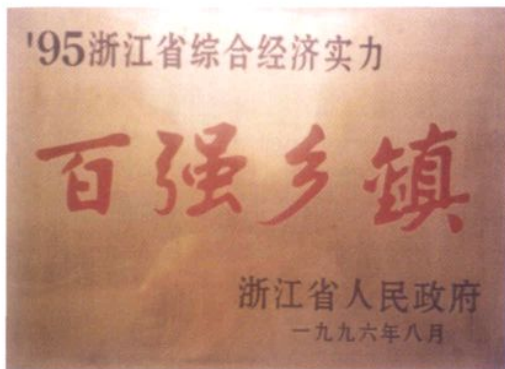 '95浙江省综合经济实力
百强乡镇
浙江省人民政府
一九九六年八月